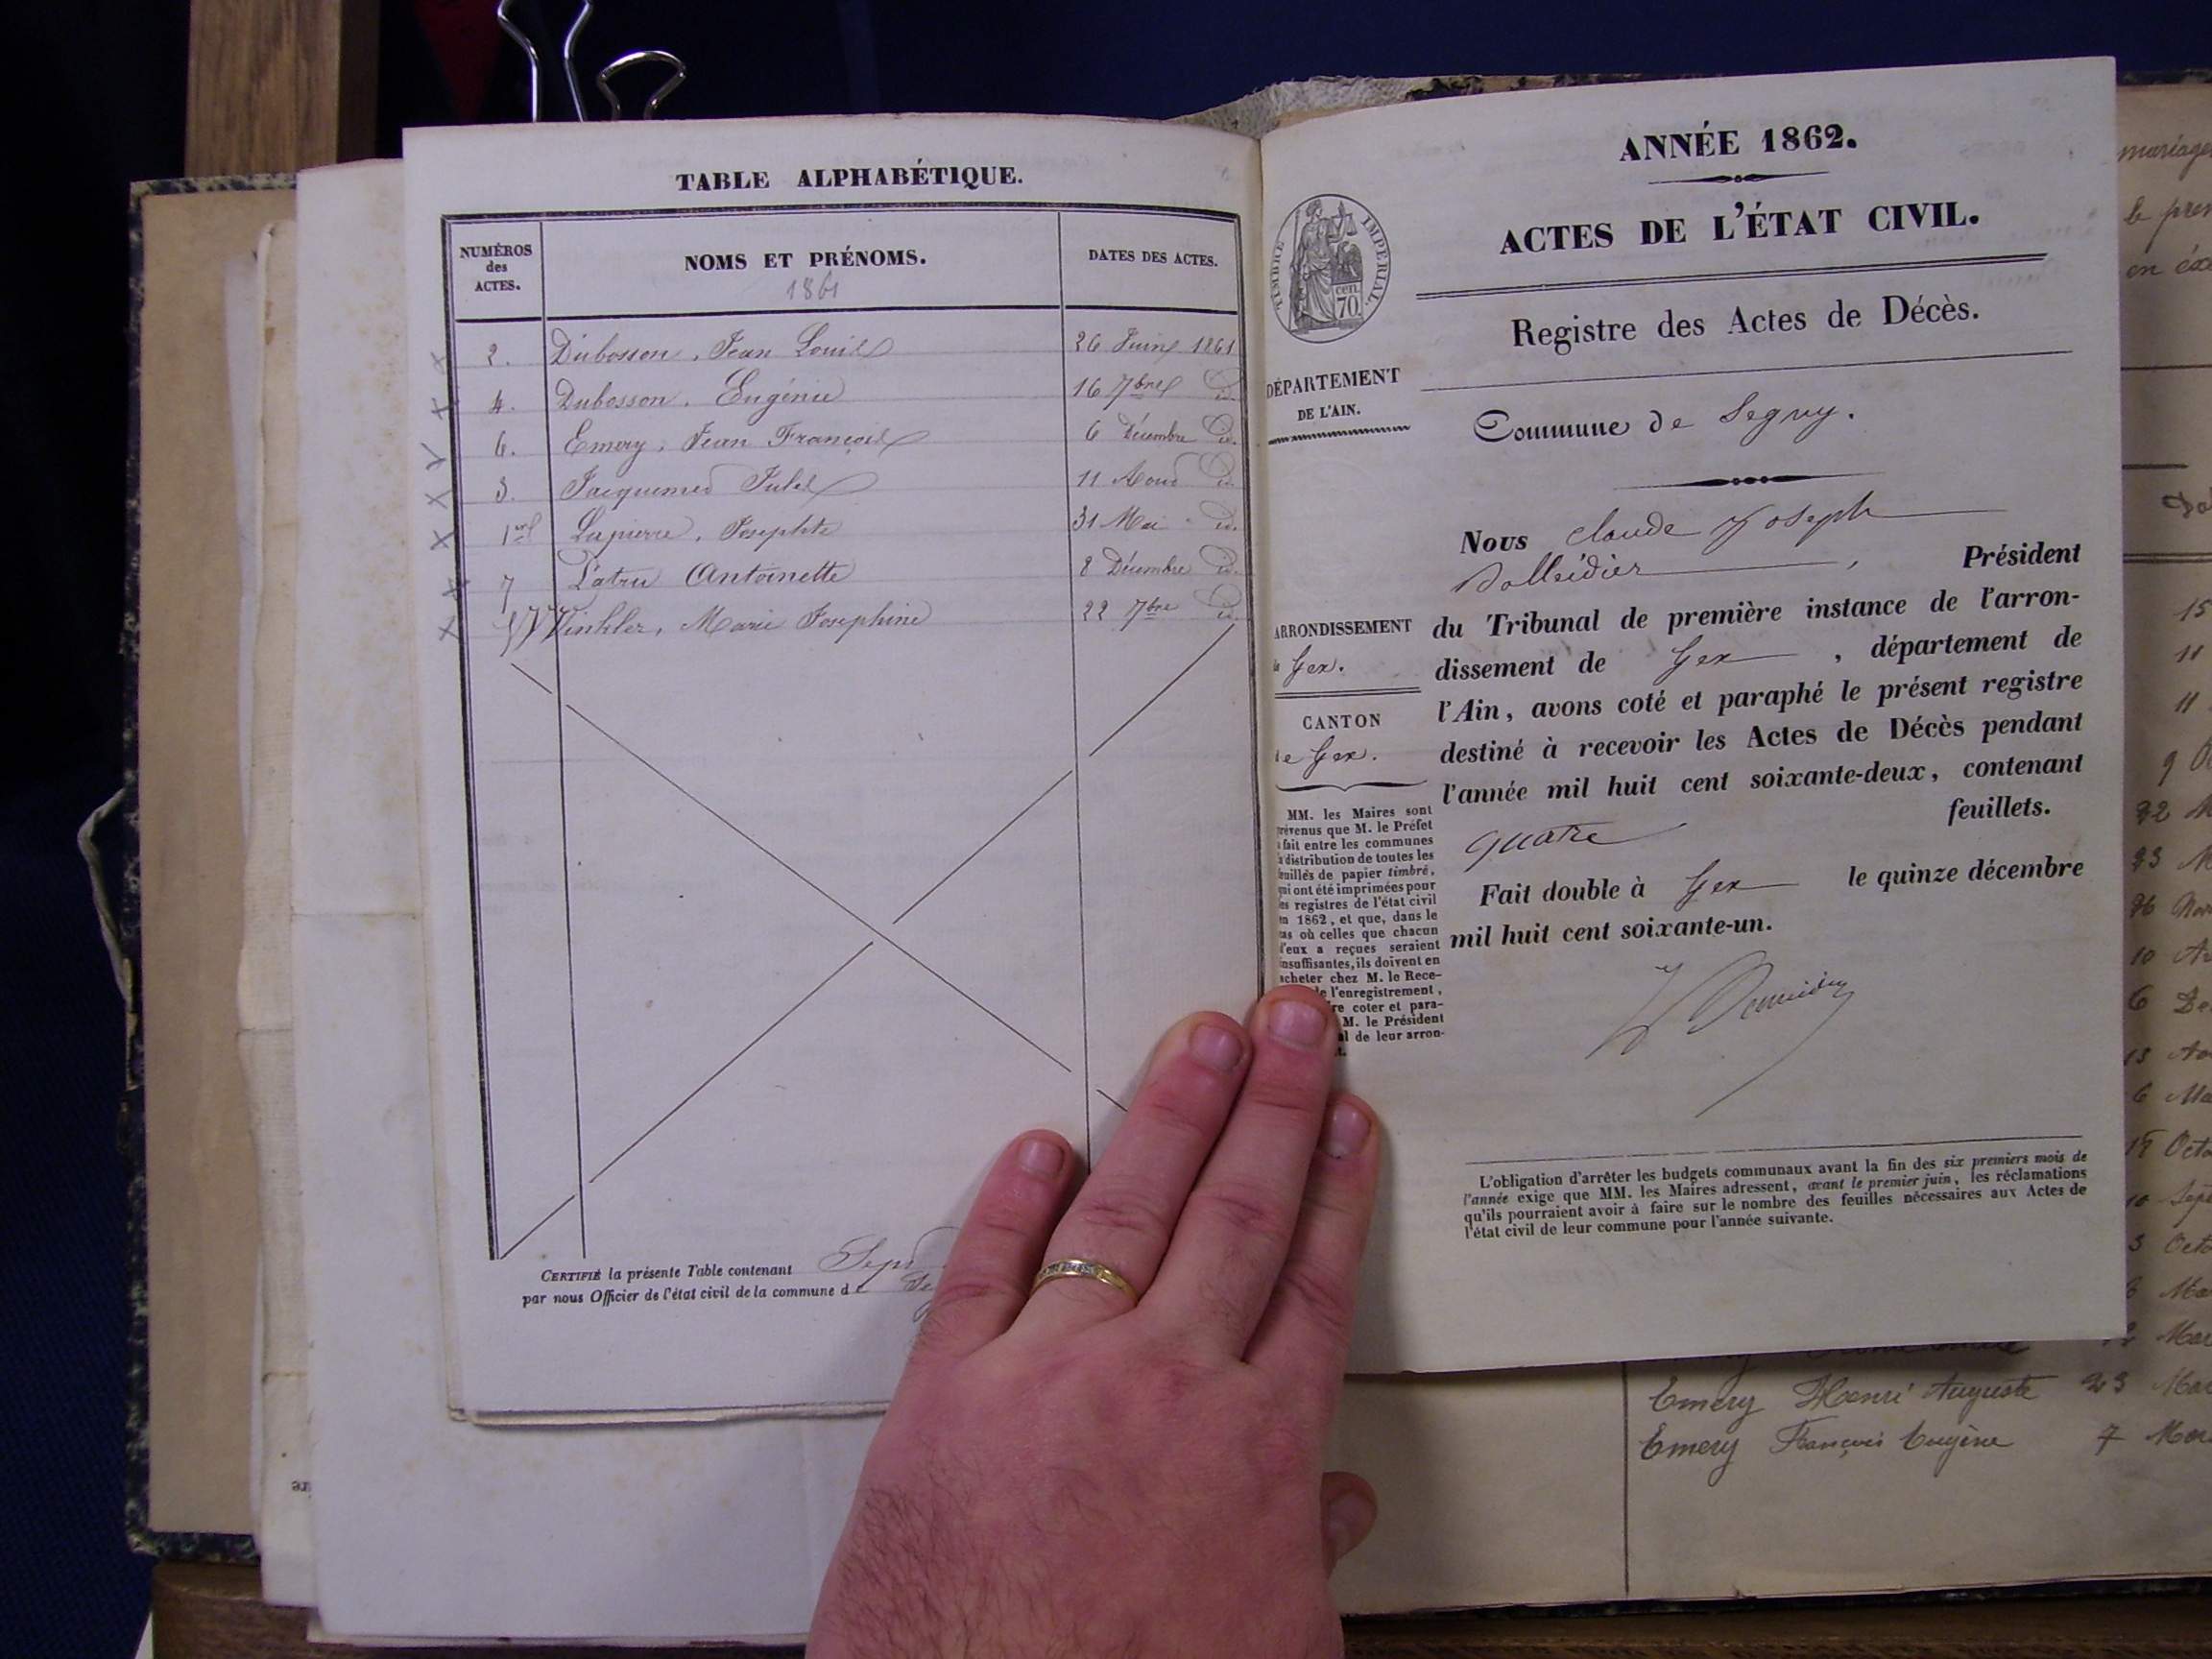 TABLE ALPHABÉTIQUE.
NUMÉROS
des
ACTES.
NOMS ET PRÉNOMS.
1861
DATES DES ACTES.
2. Dubosson, Jean Louis 26 Juin 1861
4. Dubosson, Eugénie 16 7bre id.
6. Emery, Jean François 6 Décembre id.
3. Jacquemed Jules 11 Aout id.
1er Lapierre, Josephte 31 Mai id.
7 Antoinette 8 Décembre id.
Winkler, Marie Josephine 22 7bre id.
CERTIFIÉ la présente Table contenant Sept
par nous Officier de l'état civil de la commune de
ANNÉE 1862.
ACTES DE L'ÉTAT CIVIL.
TIMBRE IMPÉRIAL.
cen.
70
Registre des Actes de Décès.
DÉPARTEMENT
DE L'AIN.
Commune de Segny.
Nous Claude Joseph
, Président
du Tribunal de première instance de l'arron-
dissement de Gex , département de
l'Ain, avons coté et paraphé le présent registre
destiné à recevoir les Actes de Décès pendant
l'année mil huit cent soixante-deux, contenant
quatre feuillets.
Fait double à Gex le quinze décembre
mil huit cent soixante-un.
ARRONDISSEMENT
Gex.
CANTON
de Gex.
MM. les Maires sont
prévenus que M. le Préfet
a fait entre les communes
la distribution de toutes les
feuilles de papier timbré,
qui ont été imprimées pour
les registres de l'état civil
en 1862, et que, dans le
cas où celles que chacun
d'eux a reçues seraient
insuffisantes, ils doivent en
acheter chez M. le Rece-
de l'enregistrement,
re coter et para-
M. le Président
al de leur arron-
t.
L'obligation d'arrêter les budgets communaux avant la fin des six premiers mois de
l'année exige que MM. les Maires adressent, avant le premier juin, les réclamations
qu'ils pourraient avoir à faire sur le nombre des feuilles nécessaires aux Actes de
l'état civil de leur commune pour l'année suivante.
mariage
le pre
en
15
11
11
9
22
23
26 Nov
10
6 De
13
6 Ma
17 Octo
10 Sept
3 Octo
6 Ma
12 Mar
Emery Henri Auguste 23 Ma
Emery François Eugène 7 Mar